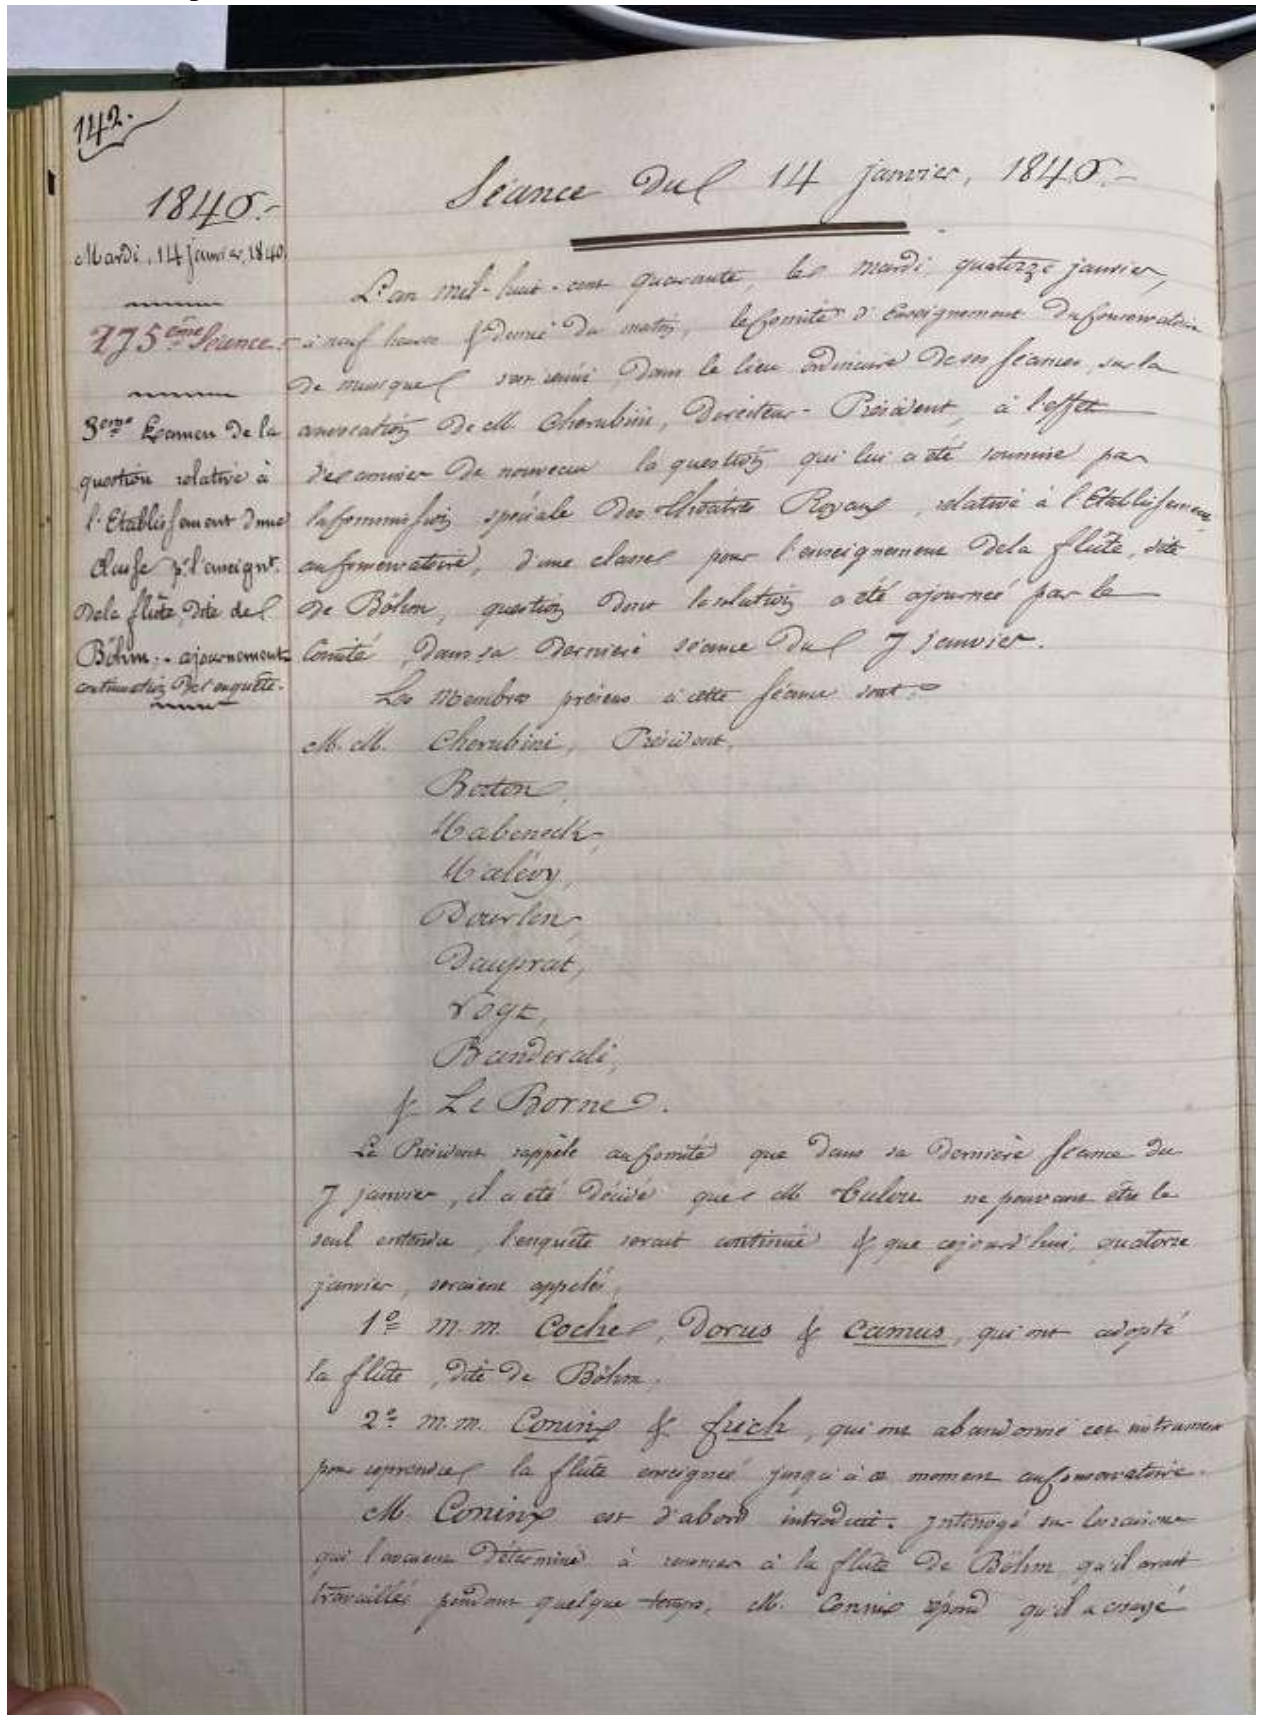 142.
1840.-
Mardi, 14 janvier, 1840
275ème Séance.-
3eme Examen de la
question relative à
l'Etablissement d'une
Classe pr. l'enseignt.
de la flûte, dite de
Böhm.- ajournement
continuation de l'enquête.
Séance du 14 janvier, 1840.-
L'an mil-huit-cent quarante, le mardi, quatorze janvier,
à neuf heures & demie du matin, le Comité d'Enseignement du Conservatoire
de musique s'est réuni dans le lieu ordinaire de ses séances, sur la
convocation de M. Cherubini, Directeur-Président, à l'effet
d'examiner de nouveau la question qui lui a été soumise par
la Commission spéciale des théâtres Royaux, relative à l'Etablissement
au Conservatoire, d'une classe pour l'enseignement de la flûte, dite
de Böhm, question dont la solution a été ajournée par le
Comité, dans sa dernière séance du 7 janvier.
Les Membres présens à cette séance sont:
M. M. Cherubini, Président,
Berton,
Habeneck,
Halévy,
Dourlen,
Dauprat,
Vogt,
Banderali,
& Le Borne.
Le Président rappèle au Comité que dans sa dernière séance du
7 janvier, il a été décidé que M. Tulou ne pouvant être le
seul entendu, l'enquête serait continuée & que cejourd'hui, quatorze
janvier, seraient appelés,
1º m.m. Coche, Dorus & Camus, qui ont adopté
la flûte, dite de Böhm,
2º m.m. Coninx & frich, qui ont abandonné cet instrument
pour reprendre la flûte enseignée jusqu'à ce moment au Conservatoire.
M. Coninx est d'abord introduit. Interrogé sur les raisons
qui l'avaient déterminé à renoncer à la flûte de Böhm, qu'il avait
travaillée pendant quelque temps, M. Coninx répond qu'il a essayé